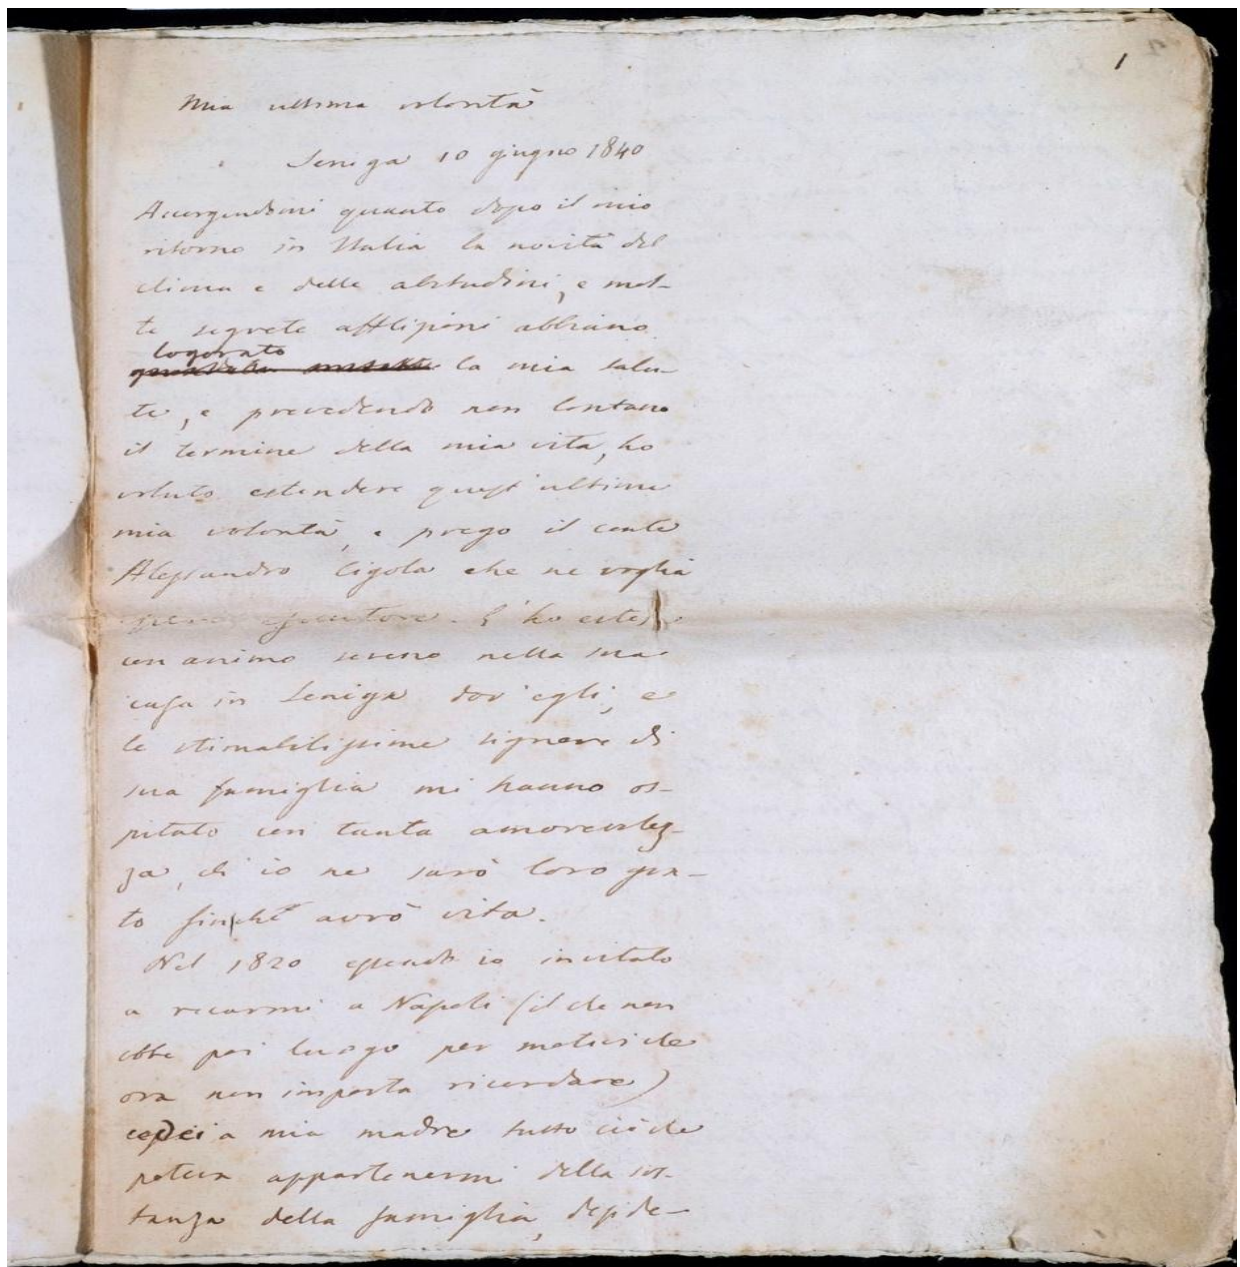 1
Mia ultima volontà
Seniga 10 giugno 1840
Accorgendomi quanto dopo il mio
ritorno in Italia la novità del
clima e delle abitudini, e mol-
te segrete afflizioni abbiano
logorato
la mia salu-
te, e prevedendo non lontano
il termine della mia vita, ho
voluto estendere quest'ultima
mia volontà, e prego il conte
Alessandro Cigola che ne voglia
essere esecutore. L'ho estesa
con animo sereno nella sua
casa in Seniga dov'egli, e
le stimabilissime signore di
sua famiglia mi hanno os-
pitato con tanta amorevolez-
za, ch'io ne sarò loro gra-
to finché avrò vita.
Nel 1820 essendo io invitato
a recarmi a Napoli (il che non
ebbe poi luogo per motivi che
ora non importa ricordare)
cedei a mia madre tutto ciò che
poteva appartenermi della sos-
tanza della famiglia, deside-